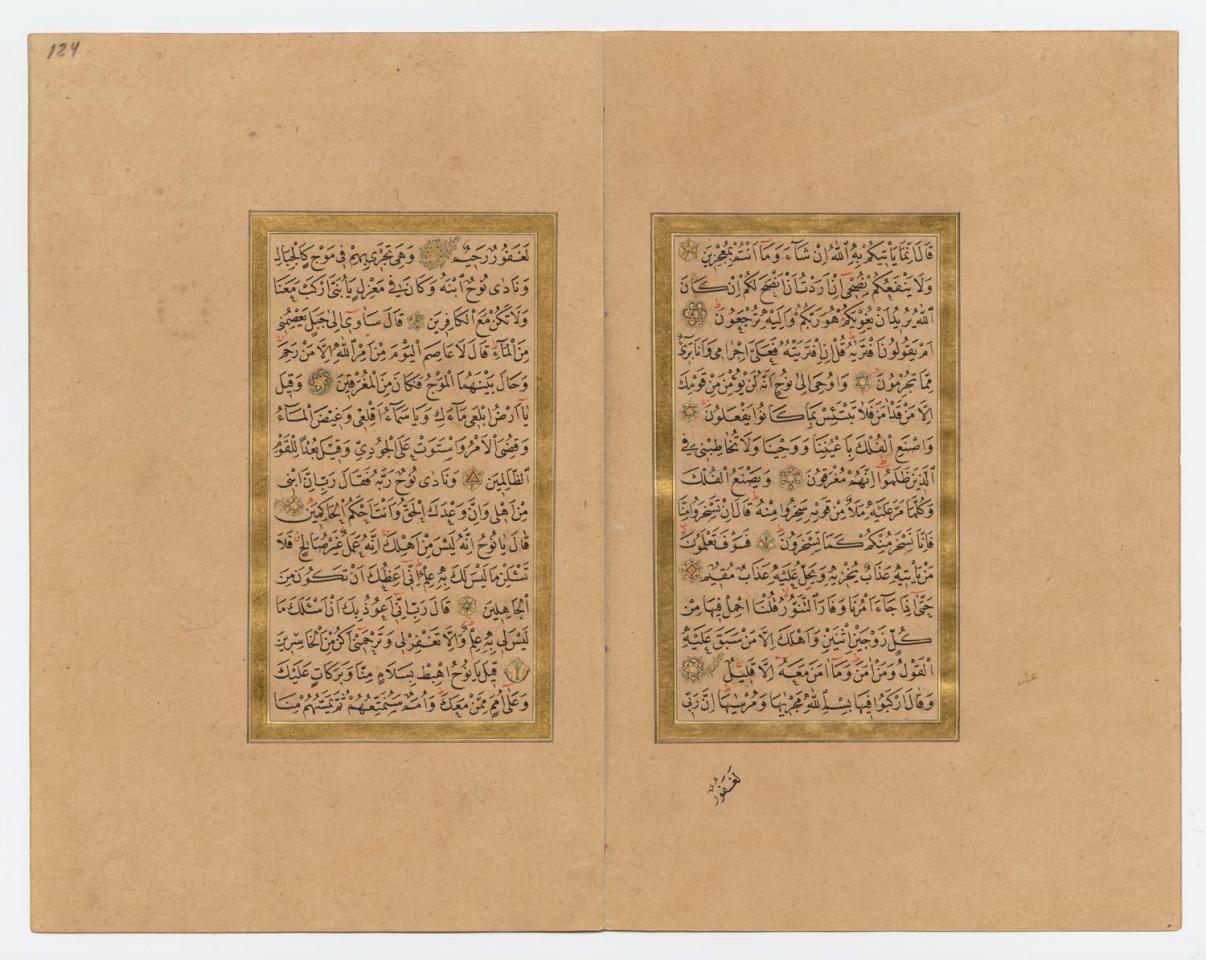 قَالَ اِنَّمَا يَاْتٖيكُمْ بِهِ اللّٰهُ اِنْ شَٓاءَ وَمَٓا اَنْتُمْ بِمُعْجِزٖينَ
وَلَا يَنْفَعُكُمْ نُصْحٖٓى اِنْ اَرَدْتُ اَنْ اَنْصَحَ لَكُمْ اِنْ كَانَ
اللّٰهُ يُرٖيدُ اَنْ يُغْوِيَكُمْ هُوَ رَبُّكُمْ وَاِلَيْهِ تُرْجَعُونَ
اَمْ يَقُولُونَ افْتَرٰيهُ قُلْ اِنِ افْتَرَيْتُهُ فَعَلَىَّ اِجْرَامٖى وَاَنَا بَرٖٓىءٌ
مِمَّا تُجْرِمُونَ وَاُوحِىَ اِلٰى نُوحٍ اَنَّهُ لَنْ يُؤْمِنَ مِنْ قَوْمِكَ
اِلَّا مَنْ قَدْ اٰمَنَ فَلَا تَبْتَئِسْ بِمَا كَانُوا يَفْعَلُونَ
وَاصْنَعِ الْفُلْكَ بِاَعْيُنِنَا وَوَحْيِنَا وَلَا تُخَاطِبْنٖى فِى
الَّذٖينَ ظَلَمُوا اِنَّهُمْ مُغْرَقُونَ وَيَصْنَعُ الْفُلْكَ
وَكُلَّمَا مَرَّ عَلَيْهِ مَلَأٌ مِنْ قَوْمِهٖ سَخِرُوا مِنْهُ قَالَ اِنْ تَسْخَرُوا مِنَّا
فَاِنَّا نَسْخَرُ مِنْكُمْ كَمَا تَسْخَرُونَ فَسَوْفَ تَعْلَمُونَ
مَنْ يَاْتٖيهِ عَذَابٌ يُخْزٖيهِ وَيَحِلُّ عَلَيْهِ عَذَابٌ مُقٖيمٌ
حَتّٰٓى اِذَا جَٓاءَ اَمْرُنَا وَفَارَ التَّنُّورُ قُلْنَا احْمِلْ فٖيهَا مِنْ
كُلٍّ زَوْجَيْنِ اثْنَيْنِ وَاَهْلَكَ اِلَّا مَنْ سَبَقَ عَلَيْهِ
الْقَوْلُ وَمَنْ اٰمَنَ وَمَٓا اٰمَنَ مَعَهُ اِلَّا قَلٖيلٌ
وَقَالَ ارْكَبُوا فٖيهَا بِسْمِ اللّٰهِ مَجْرٰيهَا وَمُرْسٰيهَا اِنَّ رَبّٖى
لَغَفُورٌ
124
لَغَفُورٌ رَحٖيمٌ وَهِىَ تَجْرٖى بِهِمْ فٖى مَوْجٍ كَالْجِبَالِ
وَنَادٰى نُوحٌ ابْنَهُ وَكَانَ فٖى مَعْزِلٍ يَا بُنَىَّ ارْكَبْ مَعَنَا
وَلَا تَكُنْ مَعَ الْكَافِرٖينَ قَالَ سَاٰوٖٓى اِلٰى جَبَلٍ يَعْصِمُنٖى
مِنَ الْمَٓاءِ قَالَ لَا عَاصِمَ الْيَوْمَ مِنْ اَمْرِ اللّٰهِ اِلَّا مَنْ رَحِمَ
وَحَالَ بَيْنَهُمَا الْمَوْجُ فَكَانَ مِنَ الْمُغْرَقٖينَ وَقٖيلَ
يَٓا اَرْضُ ابْلَعٖى مَٓاءَكِ وَيَا سَمَٓاءُ اَقْلِعٖى وَغٖيضَ الْمَٓاءُ
وَقُضِىَ الْاَمْرُ وَاسْتَوَتْ عَلَى الْجُودِىِّ وَقٖيلَ بُعْدًا لِلْقَوْمِ
الظَّالِمٖينَ وَنَادٰى نُوحٌ رَبَّهُ فَقَالَ رَبِّ اِنَّ ابْنٖى
مِنْ اَهْلٖى وَاِنَّ وَعْدَكَ الْحَقُّ وَاَنْتَ اَحْكَمُ الْحَاكِمٖينَ
قَالَ يَا نُوحُ اِنَّهُ لَيْسَ مِنْ اَهْلِكَ اِنَّهُ عَمَلٌ غَيْرُ صَالِحٍ فَلَا
تَسْـَٔلْنِ مَا لَيْسَ لَكَ بِهٖ عِلْمٌ اِنّٖٓى اَعِظُكَ اَنْ تَكُونَ مِنَ
الْجَاهِلٖينَ قَالَ رَبِّ اِنّٖٓى اَعُوذُ بِكَ اَنْ اَسْـَٔلَكَ مَا
لَيْسَ لٖى بِهٖ عِلْمٌ وَاِلَّا تَغْفِرْ لٖى وَتَرْحَمْنٖٓى اَكُنْ مِنَ الْخَاسِرٖينَ
قٖيلَ يَا نُوحُ اهْبِطْ بِسَلَامٍ مِنَّا وَبَرَكَاتٍ عَلَيْكَ
وَعَلٰٓى اُمَمٍ مِمَّنْ مَعَكَ وَاُمَمٌ سَنُمَتِّعُهُمْ ثُمَّ يَمَسُّهُمْ مِنَّا